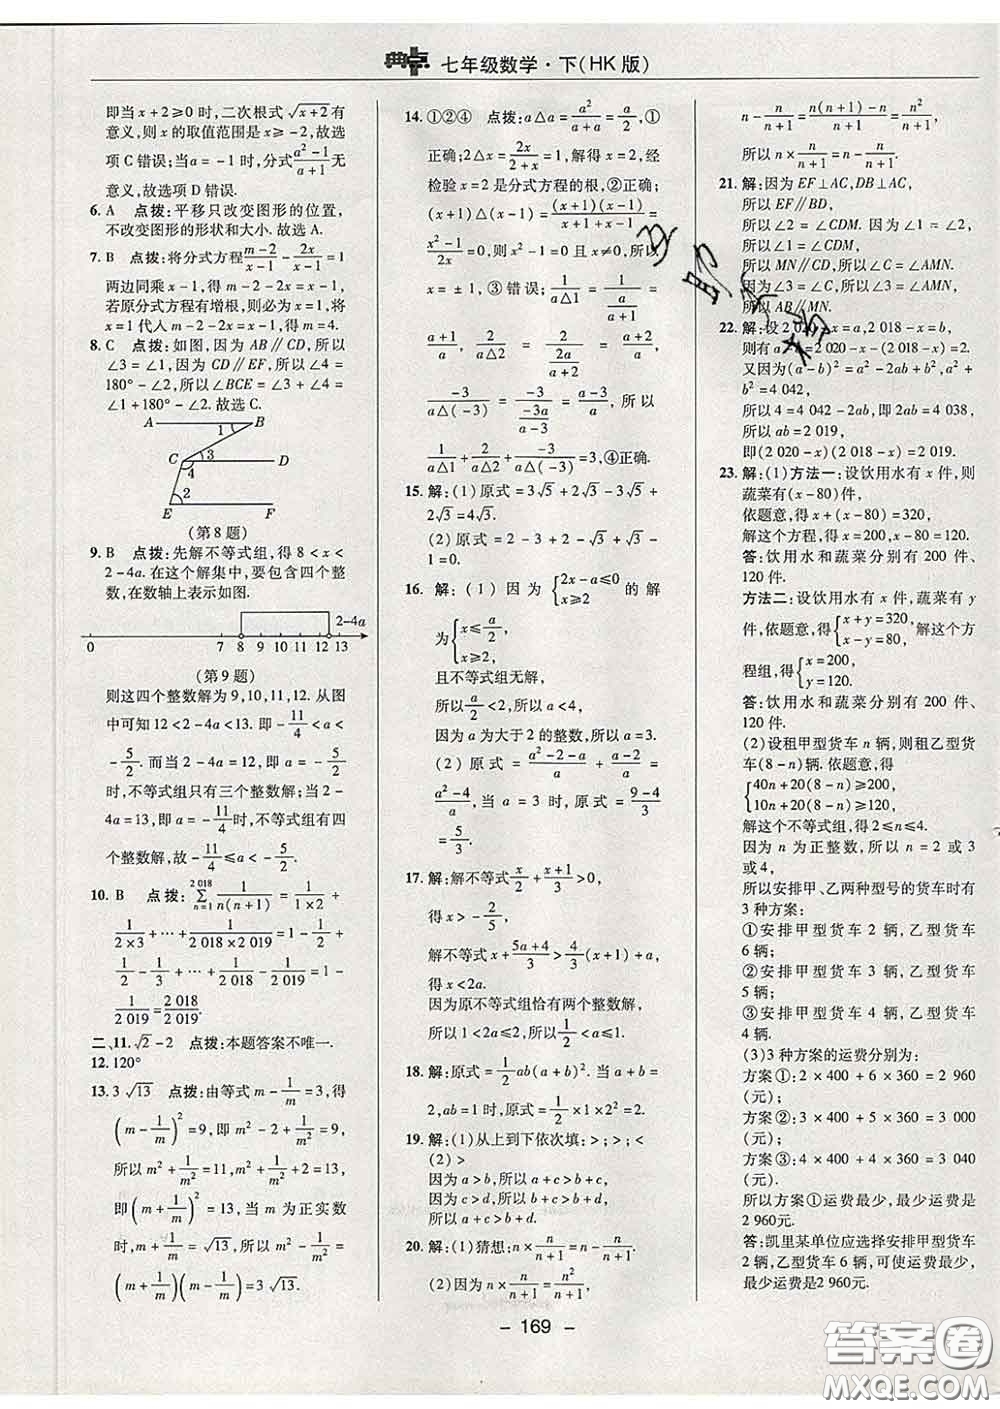 典点 七年级数学·下(HK版)
即当x+2≥0时,二次根式√(x+2)有
意义,则x的取值范围是x≥-2,故选
项C错误;当a=-1时,分式(a²-1)/(a+1)无
意义,故选项D错误.
6. A 点拨:平移只改变图形的位置,
不改变图形的形状和大小.故选A.
7. B 点拨:将分式方程(m-2)/(x-1)-2x/(x-1)=1
两边同乘x-1,得m-2-2x=x-1,
若原分式方程有增根,则必为x=1,将
x=1代入m-2-2x=x-1,得m=4.
8. C 点拨:如图,因为AB∥CD,所以
∠3=∠1,因为CD∥EF,所以∠4=
180°-∠2,所以∠BCE=∠3+∠4=
∠1+180°-∠2.故选C.
A 1 B
C 3 D
4
2
E F
(第8题)
9. B 点拨:先解不等式组,得8<x<
2-4a.在这个解集中,要包含四个整
数,在数轴上表示如图.
2-4a
0 7 8 9 10 11 12 13
(第9题)
则这四个整数解为9,10,11,12.从图
中可知12<2-4a<13.即-11/4<a<
-5/2.而当2-4a=12,即a=-5/2
时,不等式组只有三个整数解;当2-
4a=13,即a=-11/4时,不等式组有四
个整数解,故-11/4≤a<-5/2.
10. B 点拨:∑(n=1→2 018) 1/(n(n+1))=1/(1×2)+
1/(2×3)+…+1/(2 018×2 019)=1-1/2+
1/2-1/3+…+1/2 018-1/2 019=1-
1/2 019=2 018/2 019.
二、11.√2-2 点拨:本题答案不唯一.
12. 120°
13. 3√13 点拨:由等式m-1/m=3,得
(m-1/m)²=9,即m²-2+1/m²=9,
所以m²+1/m²=11,m²+1/m²+2=13,
即(m+1/m)²=13,当m为正实数
时,m+1/m=√13,所以m²-1/m²=
(m+1/m)(m-1/m)=3√13.
14. ①②④ 点拨:a△a=a²/(a+a)=a/2,①
正确;2△x=2x/(2+x)=1,解得x=2,经
检验x=2是分式方程的根,②正确;
(x+1)△(x-1)=(x+1)(x-1)/(x+1+x-1)=
(x²-1)/2x=0,则x²-1=0且x≠0,所以
x=±1,③错误;1/(a△1)=1/(a/(a+1))=
(a+1)/a,2/(a△2)=2/(2a/(a+2))=(a+2)/a,
-3/(a△(-3))=-3/(-3a/(a-3))=(a-3)/a,所以
1/(a△1)+2/(a△2)+-3/(a△(-3))=3,④正确.
15. 解:(1)原式=3√5+2√3-3√5+
2√3=4√3.
(2)原式=2-3+2-√3+√3-
1=0.
16. 解:(1)因为{2x-a≤0 x≥2的解
为{x≤a/2 x≥2,
且不等式组无解,
所以a/2<2,所以a<4,
因为a为大于2的整数,所以a=3.
(2)原式=(a²-2-a)/a+(a-2)/a=
(a²-4)/a,当a=3时,原式=(9-4)/3
=5/3.
17. 解:解不等式x/2+(x+1)/3>0,
得x>-2/5,
解不等式x+(5a+4)/3>4/3(x+1)+a,
得x<2a.
因为原不等式组恰有两个整数解,
所以1<2a≤2,所以1/2<a≤1.
18. 解:原式=1/2ab(a+b)².当a+b=
2,ab=1时,原式=1/2×1×2²=2.
19. 解:(1)从上到下依次填:>;>;<
(2)>
因为a>b,所以a+c>b+c.
因为c>d,所以b+c>b+d,
所以a+c>b+d.
20. 解:(1)猜想:n×n/(n+1)=n-n/(n+1).
(2)因为n×n/(n+1)=n²/(n+1),
n-n/(n+1)=(n(n+1)-n)/(n+1)=n²/(n+1),
所以n×n/(n+1)=n-n/(n+1).
21. 解:因为EF⊥AC,DB⊥AC,
所以EF∥BD,
所以∠2=∠CDM.因为∠1=∠2,
所以∠1=∠CDM,
所以MN∥CD,所以∠C=∠AMN.
因为∠3=∠C,所以∠3=∠AMN,
所以AB∥MN.
22. 解:设2 020-x=a,2 018-x=b,
则有a-b=2 020-x-(2 018-x)=2.
又因为(a-b)²=a²-2ab+b²,a²+
b²=4 042,
所以4=4 042-2ab,即2ab=4 038,
所以ab=2 019,
即(2 020-x)(2 018-x)=2 019.
23. 解:(1)方法一:设饮用水有x件,则
蔬菜有(x-80)件,
依题意,得x+(x-80)=320,
解这个方程,得x=200,x-80=120.
答:饮用水和蔬菜分别有200件、
120件.
方法二:设饮用水有x件,蔬菜有y
件,依题意,得{x+y=320, x-y=80,解这个方
程组,得{x=200, y=120.
答:饮用水和蔬菜分别有200件、
120件.
(2)设租甲型货车n辆,则租乙型货
车(8-n)辆.依题意,得
{40n+20(8-n)≥200,
10n+20(8-n)≥120,
解这个不等式组,得2≤n≤4.
因为n为正整数,所以n=2或3
或4,
所以安排甲、乙两种型号的货车时有
3种方案:
①安排甲型货车2辆,乙型货车
6辆;
②安排甲型货车3辆,乙型货车
5辆;
③安排甲型货车4辆,乙型货车
4辆.
(3)3种方案的运费分别为:
方案①:2×400+6×360=2 960
(元);
方案②:3×400+5×360=3 000
(元);
方案③:4×400+4×360=3 040
(元).
所以方案①运费最少,最少运费是
2 960元.
答:凯里某单位应选择安排甲型货车
2辆,乙型货车6辆,可使运费最少,
最少运费是2 960元.
- 169 -
答案圈
MXQE.COM